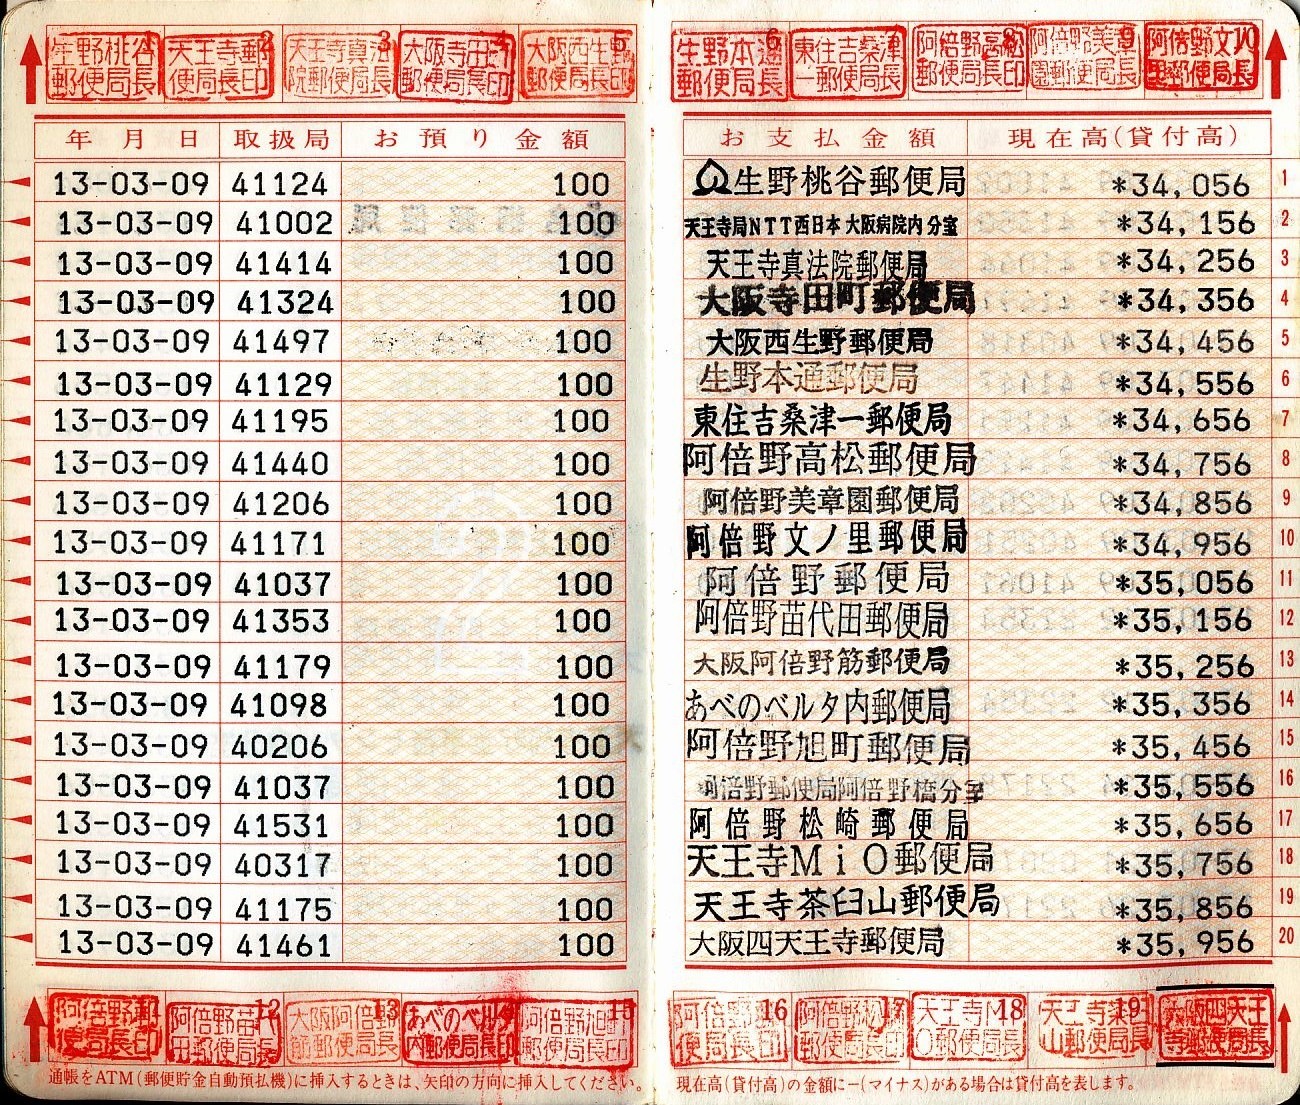 生野桃谷郵便局長印 1
天王寺郵便局長印 2
天王寺真法院郵便局長 3
大阪寺田町郵便局長印 4
大阪西生野郵便局長印 5
生野本通郵便局長 6
東住吉桑津一郵便局長 7
阿倍野高松郵便局長印 8
阿倍野美章園郵便局長 9
阿倍野文ノ里郵便局長 10
年月日 取扱局 お預り金額 お支払金額 現在高(貸付高)
13-03-09 41124 100 生野桃谷郵便局 *34,056 1
13-03-09 41002 100 天王寺局NTT西日本大阪病院内分室 *34,156 2
13-03-09 41414 100 天王寺真法院郵便局 *34,256 3
13-03-09 41324 100 大阪寺田町郵便局 *34,356 4
13-03-09 41497 100 大阪西生野郵便局 *34,456 5
13-03-09 41129 100 生野本通郵便局 *34,556 6
13-03-09 41195 100 東住吉桑津一郵便局 *34,656 7
13-03-09 41440 100 阿倍野高松郵便局 *34,756 8
13-03-09 41206 100 阿倍野美章園郵便局 *34,856 9
13-03-09 41171 100 阿倍野文ノ里郵便局 *34,956 10
13-03-09 41037 100 阿倍野郵便局 *35,056 11
13-03-09 41353 100 阿倍野苗代田郵便局 *35,156 12
13-03-09 41179 100 大阪阿倍野筋郵便局 *35,256 13
13-03-09 41098 100 あべのベルタ内郵便局 *35,356 14
13-03-09 40206 100 阿倍野旭町郵便局 *35,456 15
13-03-09 41037 100 阿倍野郵便局阿倍野橋分室 *35,556 16
13-03-09 41531 100 阿倍野松崎郵便局 *35,656 17
13-03-09 40317 100 天王寺MiO郵便局 *35,756 18
13-03-09 41175 100 天王寺茶臼山郵便局 *35,856 19
13-03-09 41461 100 大阪四天王寺郵便局 *35,956 20
阿倍野郵便局長印 11
阿倍野苗代田郵便局長 12
大阪阿倍野筋郵便局長 13
あべのベルタ内郵便局長印 14
阿倍野旭町郵便局長印 15
阿倍野郵便局長印 16
阿倍野松崎郵便局長印 17
天王寺MiO郵便局長 18
天王寺茶臼山郵便局長印 19
大阪四天王寺郵便局長
通帳をATM(郵便貯金自動預払機)に挿入するときは、矢印の方向に挿入してください。
現在高(貸付高)の金額に－(マイナス)がある場合は貸付高を表します。